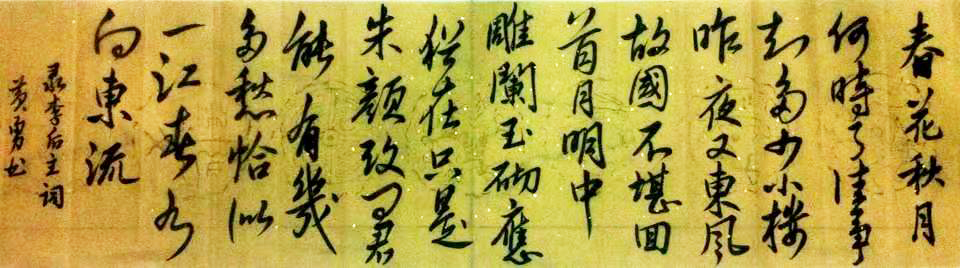 春花秋月
何時了往事
知多少小樓
昨夜又東風
故國不堪回
首月明中
雕闌玉砌應
猶在只是
朱顏改問君
能有幾
多愁恰似
一江春水
向東流
录李后主词
黄勇书